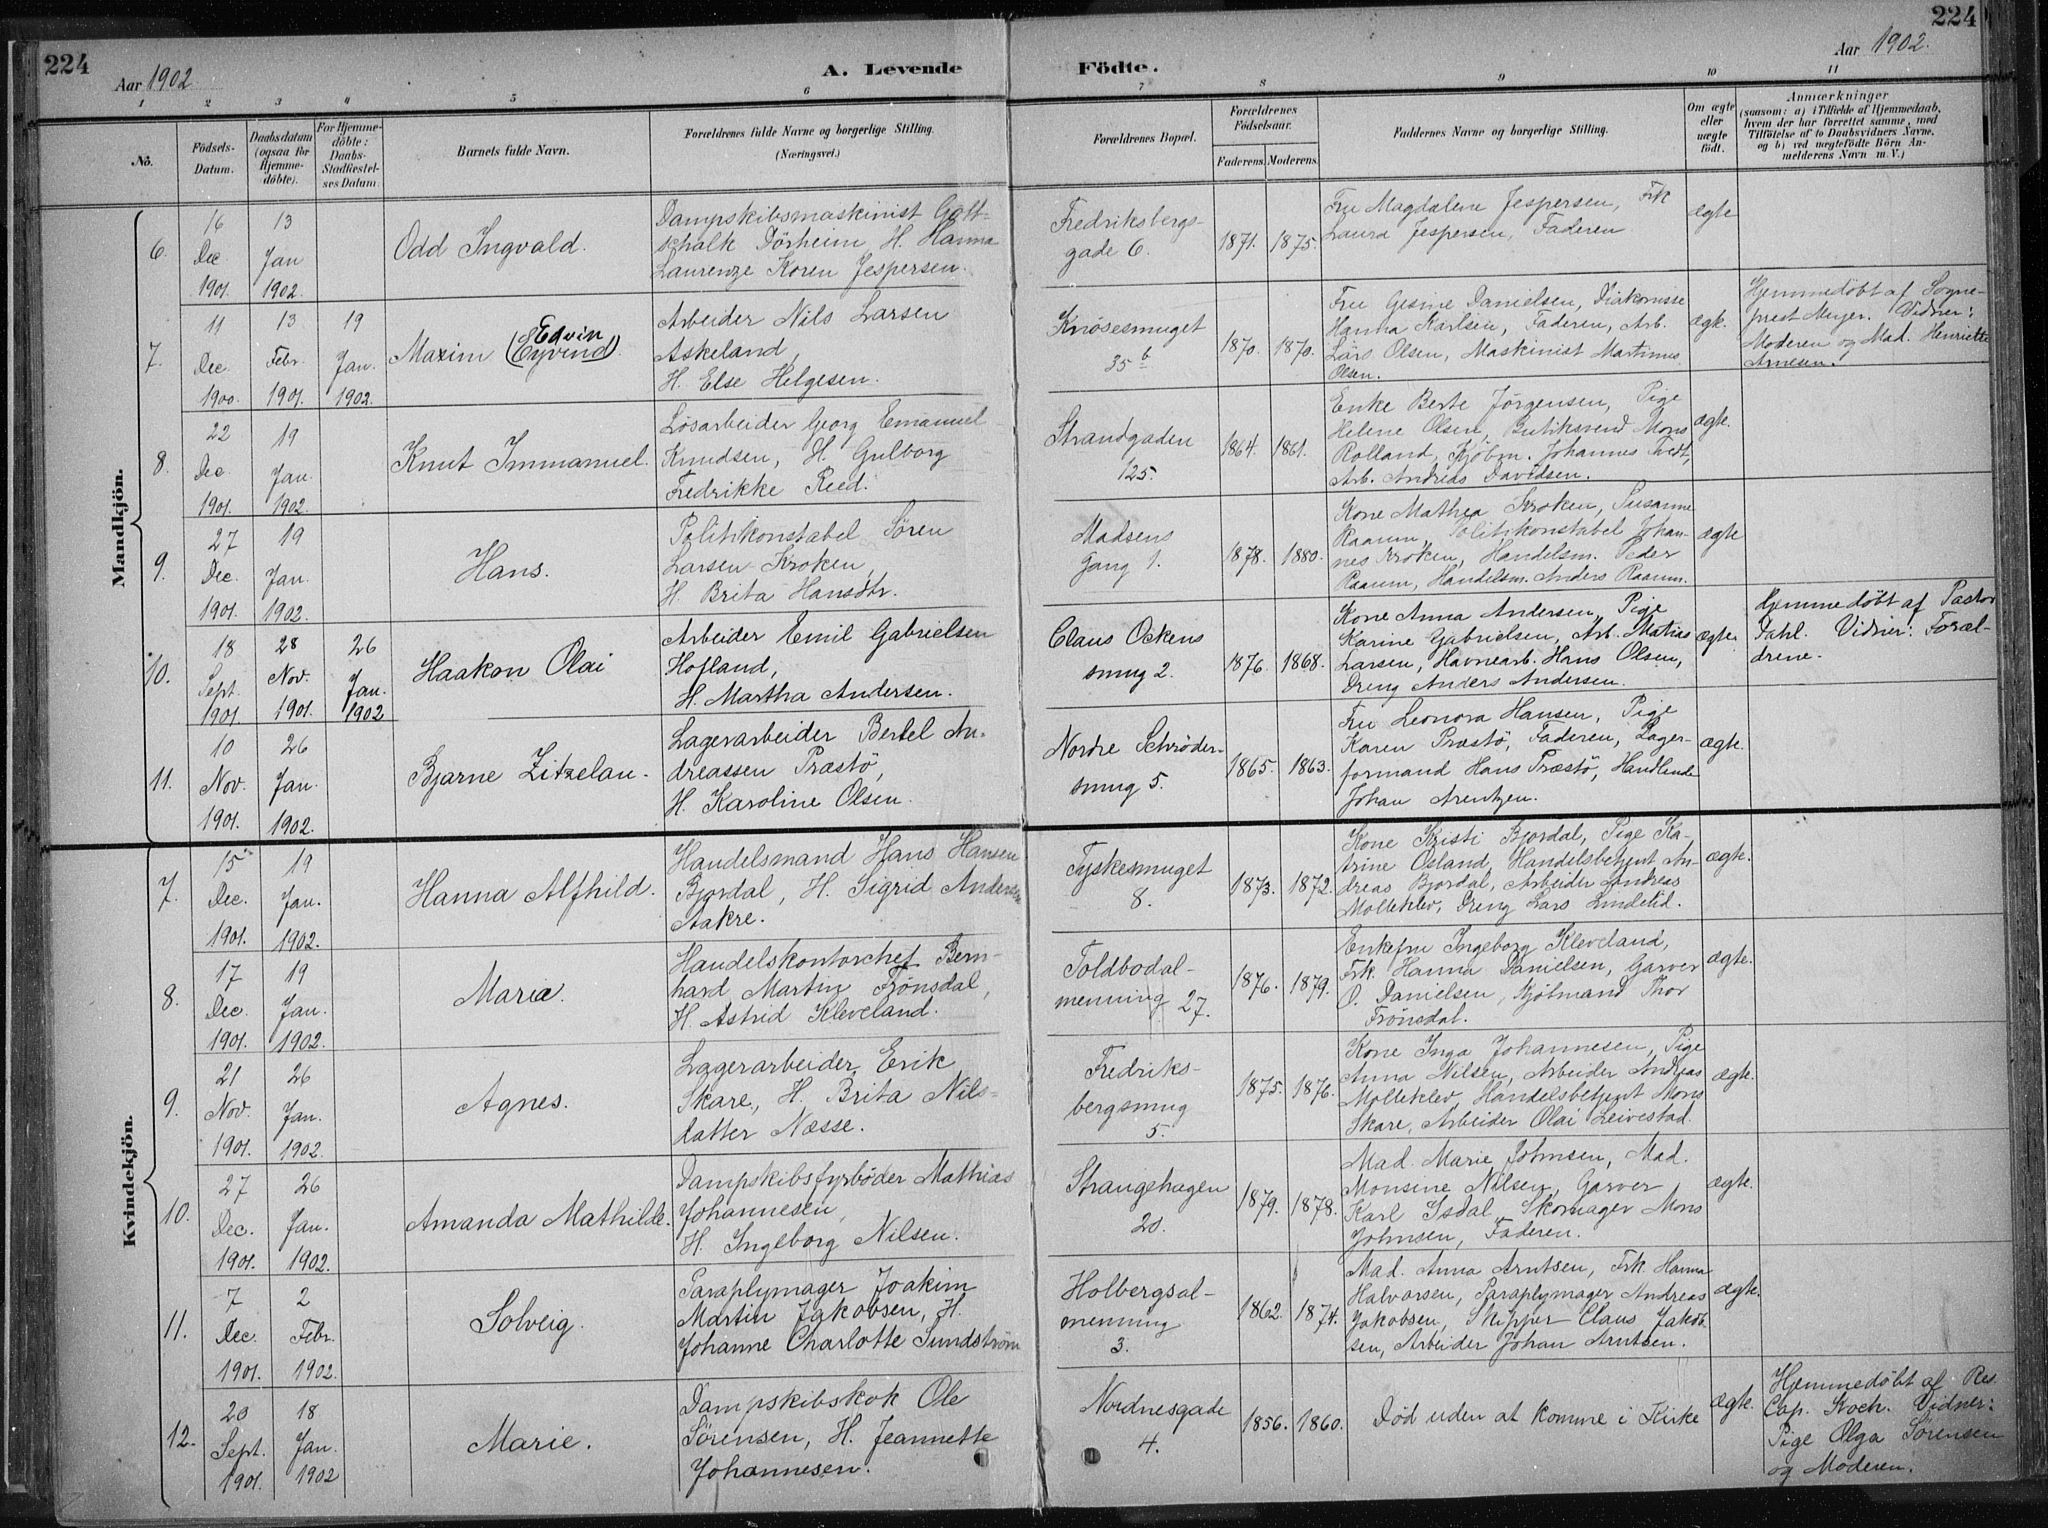 224
224
Aar 1902.
A. Levende
Födte.
Aar 1902.
1 2 3 4 5 6 7 8 9 10 11
No.
Födsels-
Datum.
Daabsdatum
(ogsaa for
Hjemme-
döbte).
For Hjemme-
döbte:
Daabs-
Stadfæstel-
ses Datum.
Barnets fulde Navn.
Forældrenes fulde Navne og borgerlige Stilling.
(Næringsvei.)
Forældrenes Bopæl.
Forældrenes
Födselsaar.
Faderens. Moderens.
Faddernes Navne og borgerlige Stilling.
Om ægte
eller
uægte
födt.
Anmærkninger
(saasom: a) i Tilfælde af Hjemmedaab,
hvem der har forrettet samme, med
Tilföielse af to Daabsvidners Navne,
og b) ved uægtefödte Börn An-
melderens Navn m. V.)
Mandkjön.
6.
16
Dec.
1901.
13
Jan
1902.
Odd Ingvald.
Dampskibsmaskinist Gott-
schalk Dörheim, H. Hanna
Laurenze Koren Jespersen.
Fredriksbergs-
gade 6.
1871. 1875.
Fru Magdalene Jespersen, Frk
Laura Jespersen, Faderen
ægte
7.
11
Dec.
1900.
13
Febr.
1901.
19
Jan.
1902.
Edvin
Maxim (Eyvind).
Arbeider Nils Larsen
Askeland,
H. Else Helgesen.
Knøsesmuget
35 b
1870. 1870.
Fru Gesine Danielsen, Diakonisse
Hanna Karlsen, Faderen, Arb.
Lars Olsen, Maskinist Martinus
Olsen.
ægte.
Hjemmedøbt af Sogne-
prest Meyer. Vidner:
Moderen og Mad. Henriette
Arnesen.
8.
22
Dec
1901.
19
Jan.
1902.
Knut Immanuel.
Løsarbeider Georg Emanuel
Knudsen, H. Gulborg
Fredrikke Reed.
Strandgaden
125.
1864. 1861.
Enke Berte Jørgensen, Pige
Helene Olsen, Butiksvend Mons
Rolland, Kjøbm. Johannes Tvedt,
Arb. Andreas Davidsen.
ægte.
9.
27
Dec.
1901.
19
Jan.
1902.
Hans.
Politikonstabel Søren
Larsen Kroken,
H. Brita Hansdtr.
Madsens
Gang 1.
1878. 1880.
Kone Mathea Kroken, Susanne
Raaum, Politikonstabel Johan-
nes Kroken, Handelsm. Peder
Raaum, Handelsm. Anders Raaum.
ægte
10.
18
Sept.
1901.
28
Nov.
1901.
26
Jan.
1902
Haakon Olai
Arbeider Emil Gabrielsen
Hofland,
H. Martha Andersen.
Claus Ockens
smug 2.
1876. 1868.
Kone Anna Andersen, Pige
Karine Gabrielsen, Arb. Matias
Larsen, Havnearb. Hans Olsen,
Dreng Anders Andersen.
ægte
Hjemmedøbt af Pastor
Dahl. Vidner: Foræl-
drene.
11.
10
Nov.
1901.
26
Jan.
1902.
Bjarne Zitzelau.
Lagerarbeider Bertel An-
dreassen Præstö,
H. Karoline Olsen.
Nordre Schrøder-
smug 5.
1865. 1863.
Fru Leonora Hansen, Pige
Karen Præstö, Faderen, Lager-
formand Hans Præstö, Handlende
Johan Arentzen.
ægte.
Kvindekjön.
7.
15
Dec.
1901.
19
Jan.
1902.
Hanna Alfhild.
Handelsmand Hans Hansen
Bjordal, H. Sigrid Andersen
Aakre.
Tyskesmuget
8.
1873. 1872.
Kone Kristi Bjordal, Pige Ka-
trine Osland, Handelsbetjent An-
dreas Bjordal, Arbeider Andreas
Molleklev, Dreng Lars Lindelid.
ægte.
8.
17
Dec.
1901.
19
Jan.
1902.
Marie.
Handelskontorchef Bern-
hard Martin Frönsdal,
H. Astrid Kleveland.
Toldbodal-
menning 27.
1876. 1879.
Enkefru Ingeborg Kleveland,
Frk. Hanna Danielsen, Garver
O. Danielsen, Kjøbmand Thor
Frönsdal.
ægte.
9.
21
Nov.
1901.
26
Jan.
1902.
Agnes.
Lagerarbeider Erik
Skare, H. Brita Nils-
datter Næsse.
Fredriks-
bergsmug
5.
1875. 1876.
Kone Inga Johannesen, Pige
Anna Nilsen, Arbeider Andreas
Molleklev, Handelsbetjent Mons
Skare, Arbeider Olai Leivestad.
ægte.
10.
27
Dec.
1901.
26
Jan.
1902.
Amanda Mathilde.
Dampskibsfyrbøder Mathias
Johannesen,
H. Ingeborg Nilsen.
Strangehagen
20.
1879. 1878.
Mad. Marie Johnsen, Mad.
Monsine Nilsen, Garver
Karl Isdal, Skomager Mons
Johnsen, Faderen.
ægte.
11.
7
Dec.
1901.
2
Febr.
1902.
Solveig.
Paraplymager Joakim
Martin Jakobsen, H.
Johanne Charlotte Sundström
Holbergsal-
menning
3.
1862. 1874.
Mad. Anna Arntsen, Frk. Hanna
Halvorsen, Paraplymager Andreas
Jakobsen, Skipper Claus Jakob-
sen, Arbeider Johan Arntsen.
ægte.
12.
20
Sept.
1901.
18
Jan.
1902
Marie.
Dampskibskok Ole
Sörensen, H. Jeannette
Johannesen.
Nordnesgade
4.
1856. 1860.
Død uden at komme i Kirke
ægte.
Hjemmedøbt af Res.
Cap. Koch. Vidner:
Pige Olga Sörensen
og Moderen.